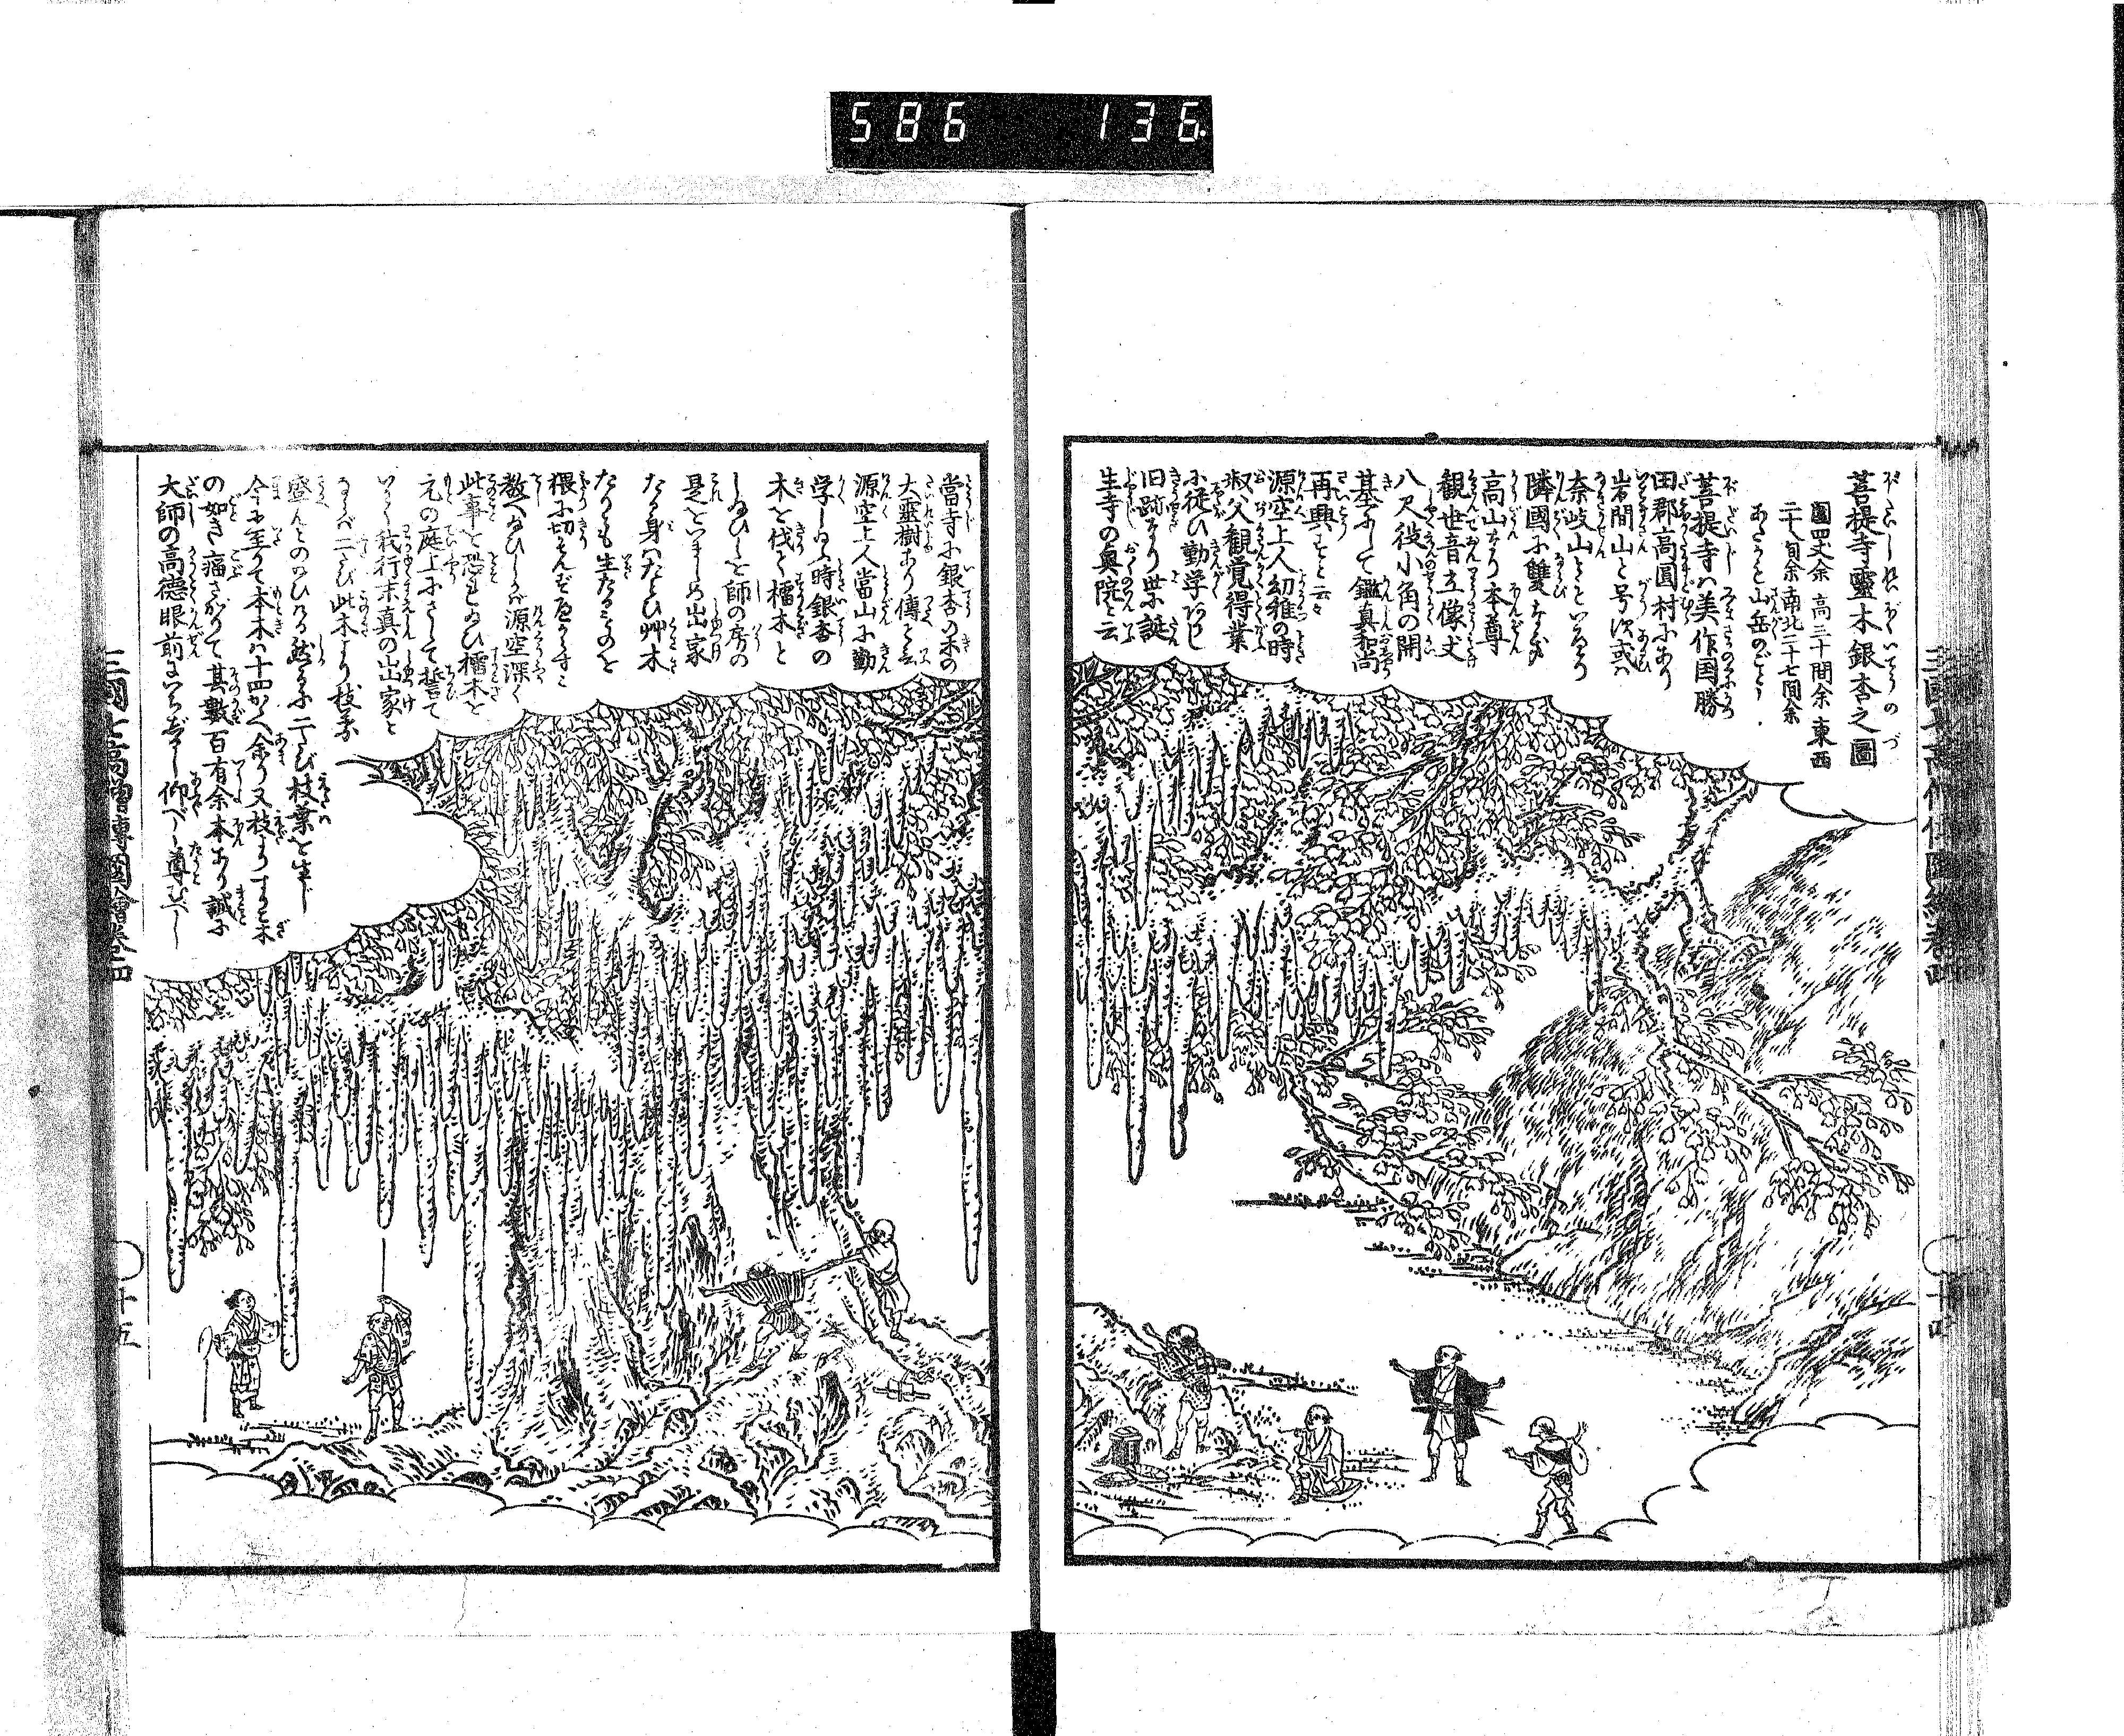 586 136
菩提寺靈木銀杏之圖
圍四丈余 高三十間余 東西
二十八旬余 南北二十七間余
あたかも山岳のごとし
菩提寺ハ美作国勝
田郡高圓村にあり
岩間山と号次或ハ
奈岐山ともいへり
隣國に雙なき
高山なり本尊
観世音立像丈
八尺役小角の開
基にして鑑真和尚
再興すと云々
源空上人幼稚の時
叔父観覚得業
に従ひ勤学ありし
旧跡なり世に誕
生寺の奥院と云
當寺に銀杏の木の
大霊樹あり傳云
源空上人當山に勤
学し給ふ時銀杏の
木を伐て櫺木と
し給ひしを師の房の
是をいましめ出家
たる身ハたとひ艸木
たりとも生たるものを
猥に切そんずべからずと
教へ給ひしかバ源空深く
此事を恐れ給ひ櫺木を
元の庭上にさして誓て
いハく我行末真の出家と
なるべくバ二たび此木より枝葉
盛んとのひ給ふ然るに二たび枝葉を生じ
今に至りて本木ハ十四かへ余り又枝より下る木
の如き瘤さがりて其數百有余本あり誠に
大師の高徳眼前にいちじるし仰べし尊むべし
三國七高僧傳圖會巻四
十五